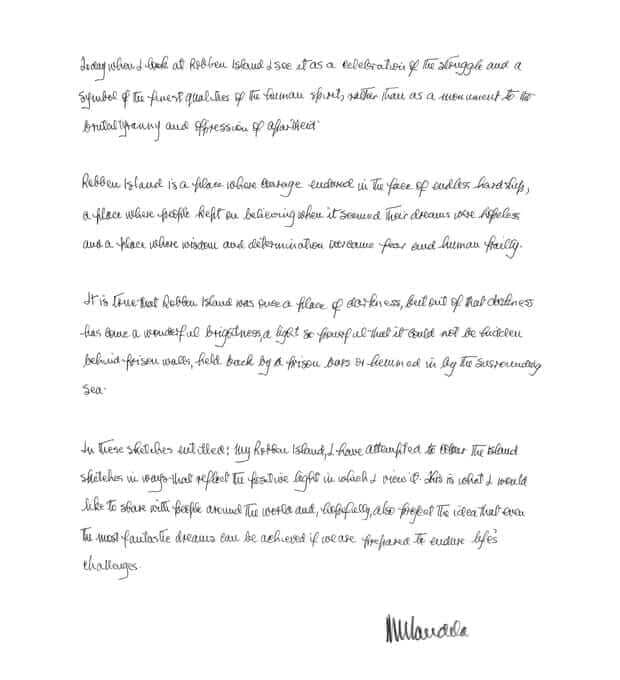 Today when I look at Robben Island I see it as a celebration of the struggle and a
symbol of the finest qualities of the human spirit, rather than as a monument to the
brutal tyranny and oppression of apartheid.
Robben Island is a place where courage endured in the face of endless hardship,
a place where people kept on believing when it seemed their dreams were hopeless
and a place where wisdom and determination overcame fear and human frailty.
It is true that Robben Island was once a place of darkness, but out of that darkness
has come a wonderful brightness, a light so powerful that it could not be hidden
behind prison walls, held back by a prison bars or hemmed in by the surrounding
sea.
In these sketches entitled: My Robben Island, I have attempted to colour the island
sketches in ways that reflect the positive light in which I view it. This is what I would
like to share with people around the world and, hopefully, also project the idea that even
the most fantastic dreams can be achieved if we are prepared to endure life's
challenges.
NMandela